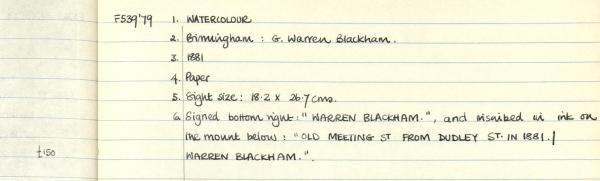 F539'79 1. WATERCOLOUR
2. Birmingham : G. Warren Blackham.
3. 1881
4. Paper
5. Sight size: 18.2 x 26.7 cms.
6. Signed bottom right: "WARREN BLACKHAM.", and inscribed in ink on
the mount below : "OLD MEETING ST FROM DUDLEY ST. IN 1881. /
£150 WARREN BLACKHAM.".